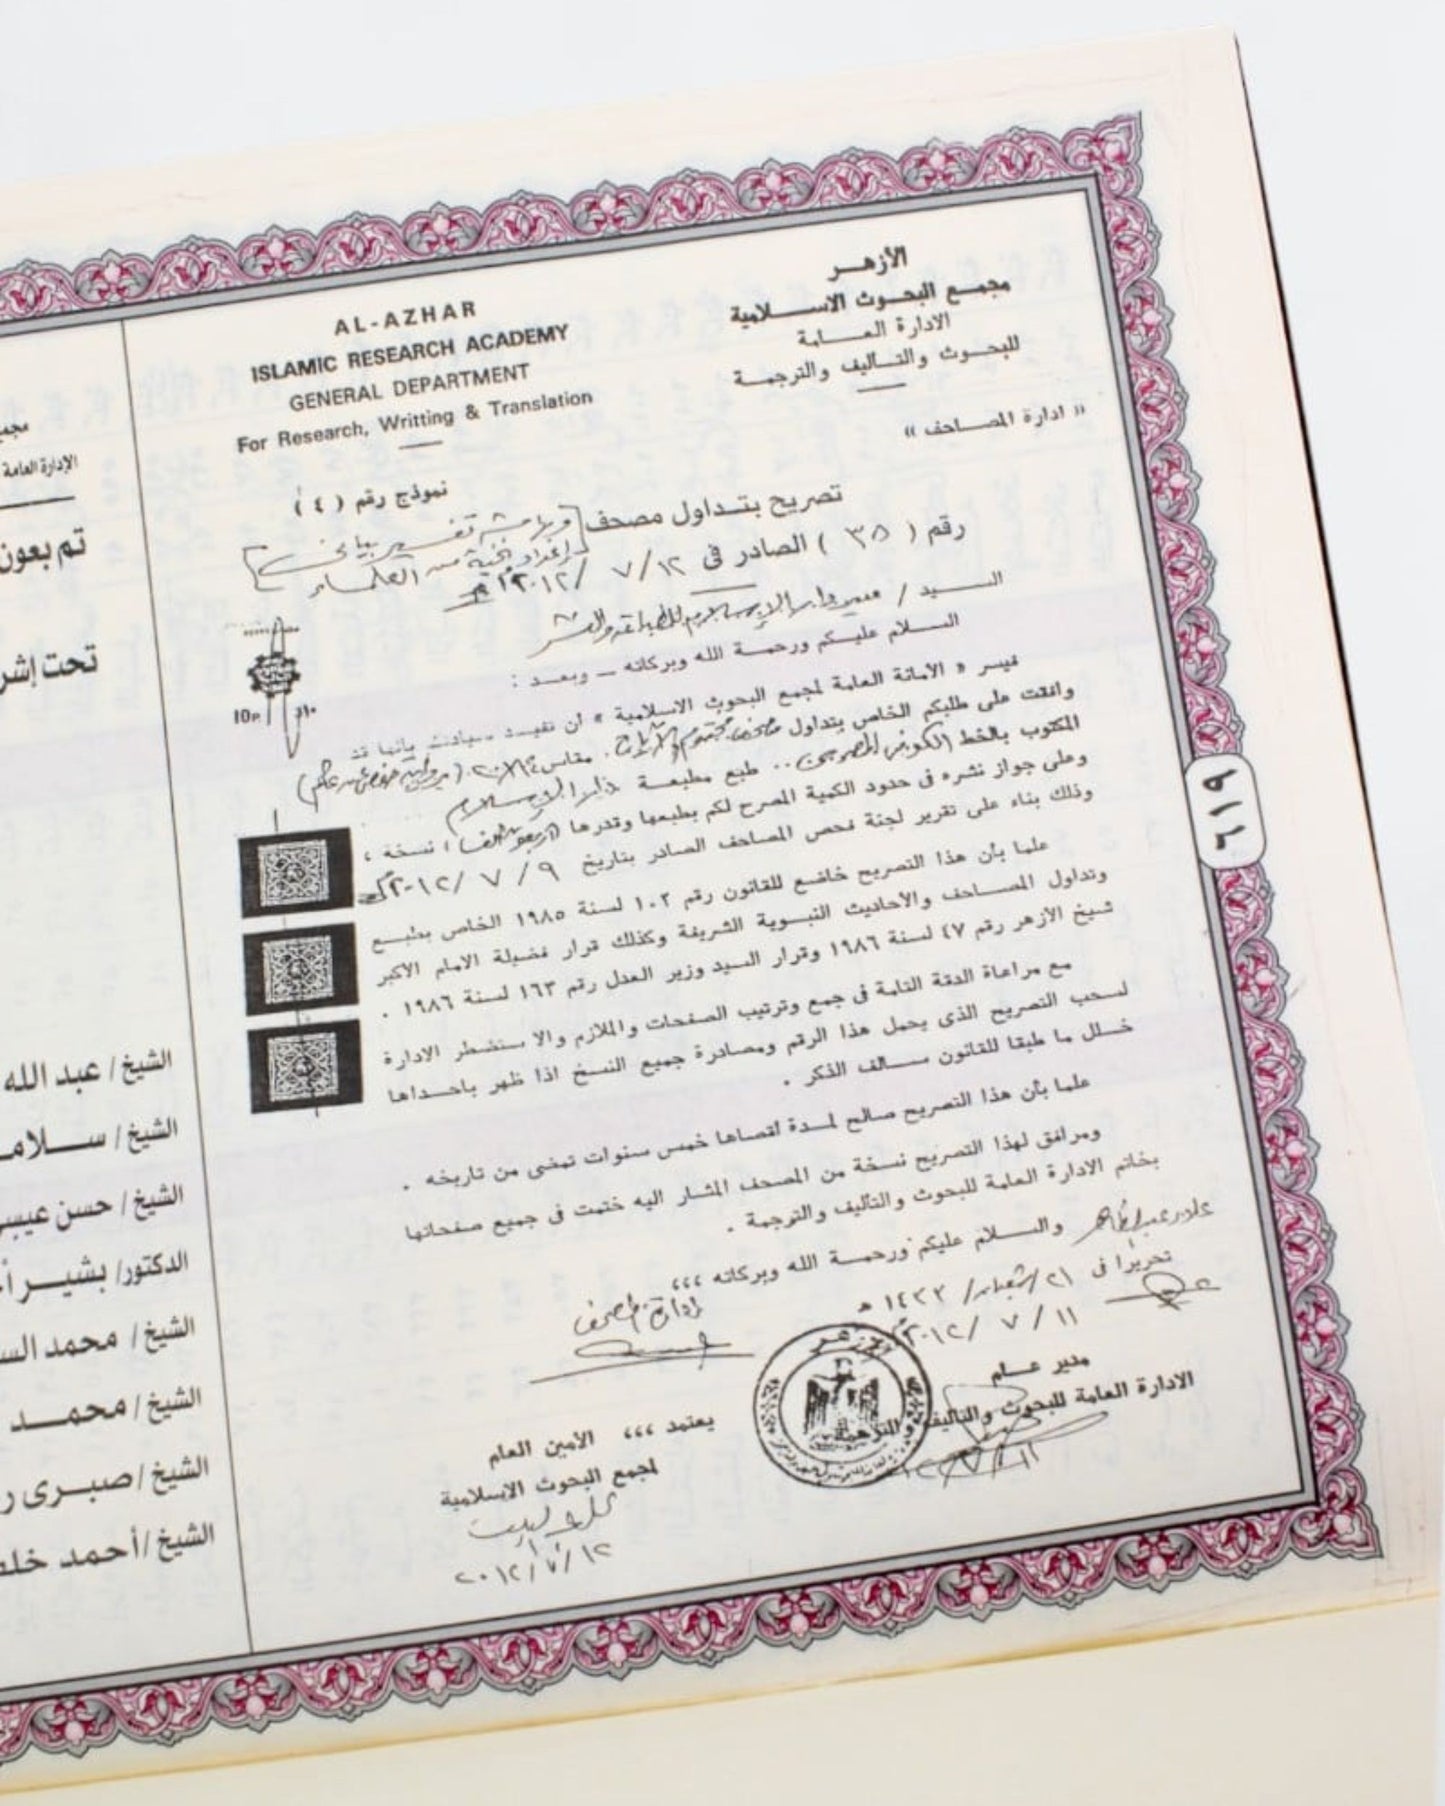 الأزهـــر
مجمع البحـوث الاســـلامية
الادارة العـــامة
للبحـوث والتــأليف والترجمــة
« ادارة المصــاحف »
AL-AZHAR
ISLAMIC RESEARCH ACADEMY
GENERAL DEPARTMENT
For Research, Writting & Translation
نموذج رقم ( ٤ )
تصريح بتــداول مصحف [وبهامشه تفسير بيانى
إعداد نخبة من العلماء]
رقم ( ٣٥ ) الصادر فى ١٢ / ٧ / ٢٠١٢ م
الســـيد / مدير دار الإسلام للطباعة والنشر
الســـلام عليـكم ورحمـــة الله وبركاته ــ وبعـــد :
تميسر « الأمانة العامة لمجمع البحوث الاسلامية » أن تفيـــد سيادتكم بأنها قد
وافقت على طلبكم الخاص بتداول مصحف مقاس
المكتوب بالخط طبع مطبعـة دار الإسلام
وعلى جواز نشره فى حدود الكمية المصرح لكم بطبعها وقدرها ( ألف ) نسخة ،
وذلك بناء على تقرير لجنة فحص المصاحف الصادر بتاريخ ٩ / ٧ / ٢٠١٢ م
علما بأن هذا التصريح خاضع للقانون رقم ١٠٢ لسنة ١٩٨٥ الخاص بطبــع
وتداول المصــاحف والأحاديث النبــوية الشريفة وكذلك قرار فضيلة الامام الأكبر
شيخ الأزهر رقم ٤٧ لسنة ١٩٨٦ وقرار السيد وزير العدل رقم ١٦٣ لسنة ١٩٨٦ .
مع مراعاة الدقة التامة فى جمع وترتيب الصفحات والملازم والا ستضطر الادارة
لسحب التصريح الذى يحمل هذا الرقم ومصادرة جميع النسخ اذا ظهر باحــداها
خــلل ما طبقا للقانون ســالف الذكر .
علما بأن هذا التصريح صالح لمــدة أقصاها خمس سنوات تمضى من تاريخه .
ومرافق لهذا التصريح نسخة من المصحف المشار اليه ختمت فى جميع صفحاتها
بخاتم الادارة العامة للبحوث والتأليف والترجمة .
والســلام عليكم ورحمــة الله وبركاته ،،،
تحريرا فى ٢١ / شعبان / ١٤٣٣ هـ
١١ / ٧ / ٢٠١٢ م
مدير عــام
الادارة العامة للبحوث والتأليف والترجمة
يعتمد ،،،
الأمين العام
لمجمع البحوث الاسلامية
١٢ / ٧ / ٢٠١٢
مجمع
الإدارة العامة
تم بعون
تحت إشر
الشيخ / عبد الله
الشيخ / ســـلامـ
الشيخ / حسن عيسى
الدكتور / بشيـــر أ
الشيخ / محمد الس
الشيخ / محمـــد
الشيخ / صبـــرى ر
الشيخ / أحمد خلف